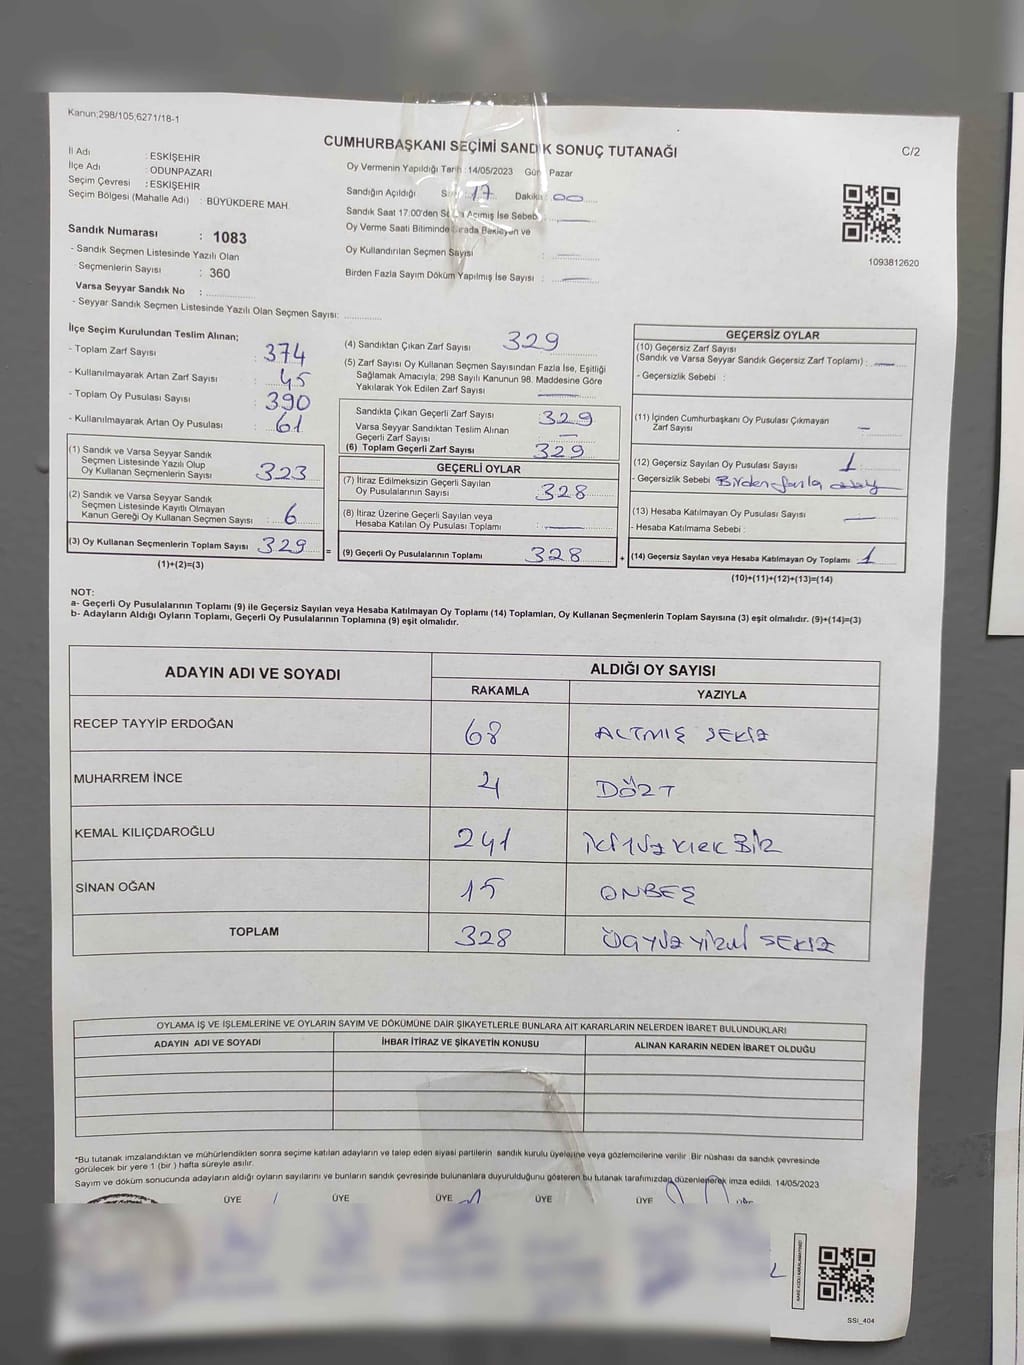 Kanun;298/105;6271/18-1
CUMHURBAŞKANI SEÇİMİ SANDIK SONUÇ TUTANAĞI
C/2
İl Adı : ESKİŞEHİR
İlçe Adı : ODUNPAZARI
Seçim Çevresi : ESKİŞEHİR
Seçim Bölgesi (Mahalle Adı) : BÜYÜKDERE MAH.
Sandık Numarası : 1083
- Sandık Seçmen Listesinde Yazılı Olan
Seçmenlerin Sayısı : 360
Varsa Seyyar Sandık No :
- Seyyar Sandık Seçmen Listesinde Yazılı Olan Seçmen Sayısı:
Oy Vermenin Yapıldığı Tarih :14/05/2023 Gün Pazar
Sandığın Açıldığı 17 Dakika : 00
Sandık Saat 17.00'den Açılmış İse Sebebi
Oy Verme Saati Bitiminde Sırada Bekleyen ve
Oy Kullandırılan Seçmen Sayısı :
Birden Fazla Sayım Döküm Yapılmış İse Sayısı :
1093812620
İlçe Seçim Kurulundan Teslim Alınan;
- Toplam Zarf Sayısı : 374
- Kullanılmayarak Artan Zarf Sayısı : 45
- Toplam Oy Pusulası Sayısı : 390
- Kullanılmayarak Artan Oy Pusulası : 61
(1) Sandık ve Varsa Seyyar Sandık
Seçmen Listesinde Yazılı Olup
Oy Kullanan Seçmenlerin Sayısı : 323
(2) Sandık ve Varsa Seyyar Sandık
Seçmen Listesinde Kayıtlı Olmayan
Kanun Gereği Oy Kullanan Seçmen Sayısı : 6
(3) Oy Kullanan Seçmenlerin Toplam Sayısı : 329
(1)+(2)=(3)
(4) Sandıktan Çıkan Zarf Sayısı : 329
(5) Zarf Sayısı Oy Kullanan Seçmen Sayısından Fazla İse, Eşitliği
Sağlamak Amacıyla, 298 Sayılı Kanunun 98. Maddesine Göre
Yakılarak Yok Edilen Zarf Sayısı :
Sandıkta Çıkan Geçerli Zarf Sayısı : 329
Varsa Seyyar Sandıktan Teslim Alınan
Geçerli Zarf Sayısı : —
(6) Toplam Geçerli Zarf Sayısı : 329
GEÇERLİ OYLAR
(7) İtiraz Edilmeksizin Geçerli Sayılan
Oy Pusulalarının Sayısı : 328
(8) İtiraz Üzerine Geçerli Sayılan veya
Hesaba Katılan Oy Pusulası Toplamı :
= (9) Geçerli Oy Pusulalarının Toplamı : 328 +
GEÇERSİZ OYLAR
(10) Geçersiz Zarf Sayısı
(Sandık ve Varsa Seyyar Sandık Geçersiz Zarf Toplamı) :
- Geçersizlik Sebebi :
(11) İçinden Cumhurbaşkanı Oy Pusulası Çıkmayan
Zarf Sayısı : —
(12) Geçersiz Sayılan Oy Pusulası Sayısı : 1
- Geçersizlik Sebebi Birden fazla aday
(13) Hesaba Katılmayan Oy Pusulası Sayısı : —
- Hesaba Katılmama Sebebi :
(14) Geçersiz Sayılan veya Hesaba Katılmayan Oy Toplamı : 1
(10)+(11)+(12)+(13)=(14)
NOT:
a- Geçerli Oy Pusulalarının Toplamı (9) ile Geçersiz Sayılan veya Hesaba Katılmayan Oy Toplamı (14) Toplamları, Oy Kullanan Seçmenlerin Toplam Sayısına (3) eşit olmalıdır. (9)+(14)=(3)
b- Adayların Aldığı Oyların Toplamı, Geçerli Oy Pusulalarının Toplamına (9) eşit olmalıdır.
ADAYIN ADI VE SOYADI ALDIĞI OY SAYISI
RAKAMLA YAZIYLA
RECEP TAYYİP ERDOĞAN 68 ALTMIŞ SEKİZ
MUHARREM İNCE 4 DÖRT
KEMAL KILIÇDAROĞLU 241 İKİYÜZ KIRK BİR
SİNAN OĞAN 15 ONBEŞ
TOPLAM 328 ÜÇYÜZ YİRMİ SEKİZ
OYLAMA İŞ VE İŞLEMLERİNE VE OYLARIN SAYIM VE DÖKÜMÜNE DAİR ŞİKAYETLERLE BUNLARA AİT KARARLARIN NELERDEN İBARET BULUNDUKLARI
ADAYIN ADI VE SOYADI İHBAR İTİRAZ VE ŞİKAYETİN KONUSU ALINAN KARARIN NEDEN İBARET OLDUĞU
*Bu tutanak imzalandıktan ve mühürlendikten sonra seçime katılan adayların ve talep eden siyasi partilerin sandık kurulu üyelerine veya gözlemcilerine verilir. Bir nüshası da sandık çevresinde
görülecek bir yere 1 (bir ) hafta süreyle asılır.
Sayım ve döküm sonucunda adayların aldığı oyların sayılarını ve bunların sandık çevresinde bulunanlara duyurulduğunu gösteren bu tutanak tarafımızdan düzenlenerek imza edildi. 14/05/2023
ÜYE ÜYE ÜYE ÜYE ÜYE
SSİ_404